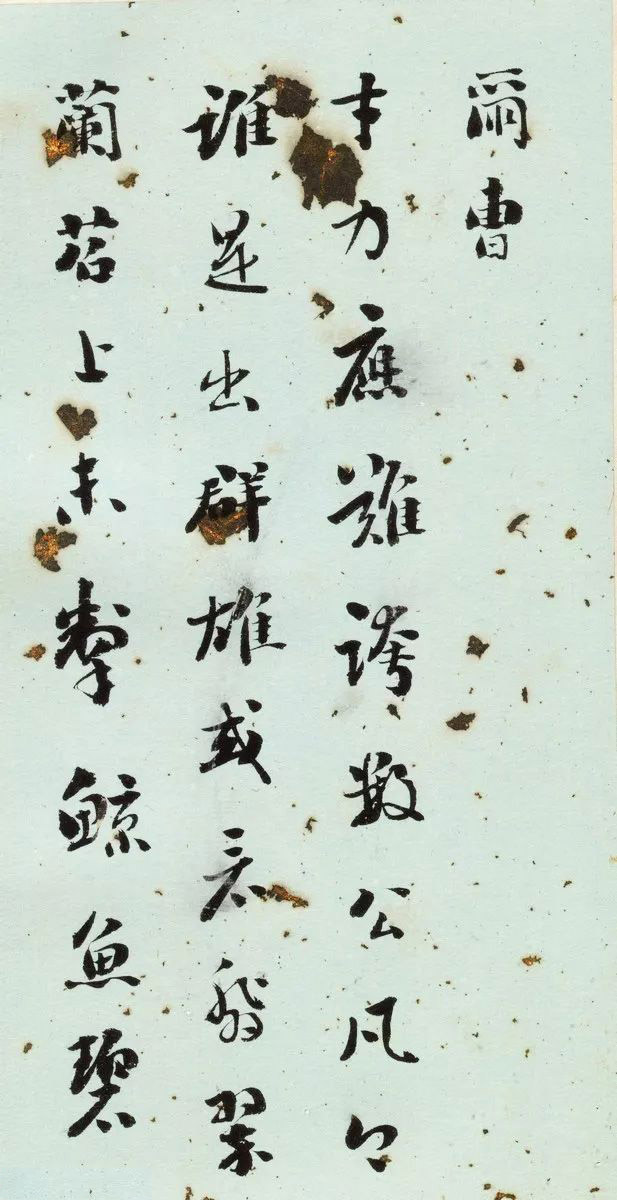 爾曹
才力應難誇數公凡今
誰是出群雄或看翡翠
蘭苕上未掣鯨魚碧